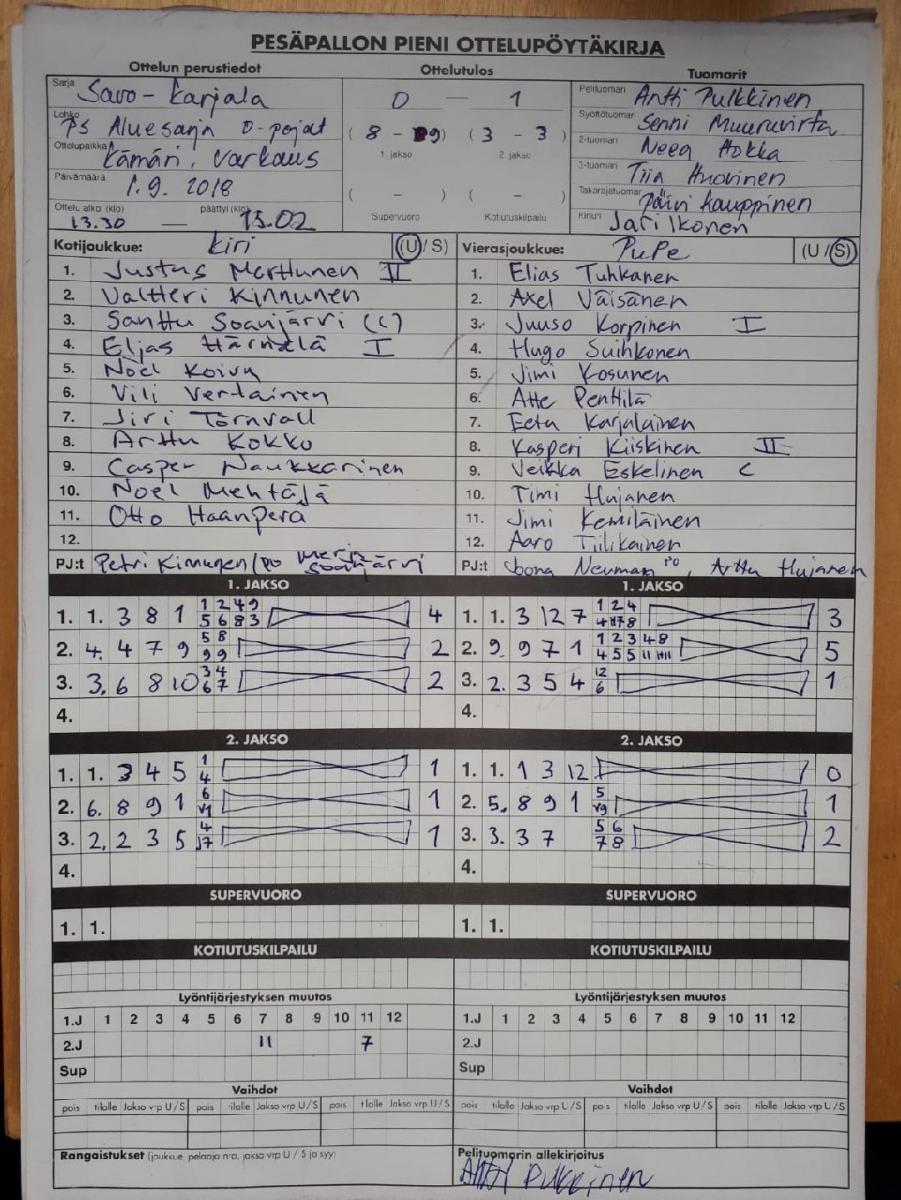 PESÄPALLON PIENI OTTELUPÖYTÄKIRJA
Ottelun perustiedot Ottelutulos Tuomarit
Sarja Savo-Karjala
Lohko PS Aluesarja D-pojat
Ottelupaikka Kämäri, Varkaus
Päivämäärä 1.9. 2018
Ottelu alkoi (klo) 13.30 — päättyi (klo) 15.02
0 — 1
(8 - 9) (3 - 3)
1. jakso 2. jakso
( - ) ( - )
Supervuoro Kotutuskilpailu
Pelituomari Antti Pulkkinen
Syöttötuomari Senni Muuruvirta
2-tuomari Neea Hokka
3-tuomari Tiia Huovinen
Takarajatuomari Päivi Kauppinen
Kirjuri Jari Ikonen
Kotijoukkue: Kiri (U/S)
1. Justus Marttunen II
2. Valtteri Kinnunen
3. Santtu Soanjärvi (C)
4. Eljas Härmälä I
5. Noel Koivu
6. Vili Vertainen
7. Jiri Törnvall
8. Arttu Kokko
9. Casper Naukkarinen
10. Noel Mehtäjä
11. Otto Haanperä
12.
PJ:t Petri Kinnunen / po Merja Soanjärvi
Vierasjoukkue: PuPe (U/S)
1. Elias Tuhkanen
2. Axel Väisänen
3. Juuso Korpinen I
4. Hugo Suihkonen
5. Jimi Kosunen
6. Atte Penttilä
7. Eetu Karjalainen
8. Kasperi Kiiskinen II
9. Veikka Eskelinen C
10. Timi Hujanen
11. Jimi Kemiläinen
12. Aaro Tiilikainen
PJ:t Neuman PO, Arttu Hujanen
1. JAKSO 1. JAKSO
1. 1. 3 8 1 1 2 4 9 5 6 8 3 4
2. 4. 4 7 9 5 8 9 9 2
3. 3. 6 8 10 3 4 6 7 2
4.
1. 1. 3 12 7 1 2 4 4 11 7 8 3
2. 9. 9 7 1 1 2 3 4 8 4 5 5 11 5
3. 2. 3 5 4 12 6 1
4.
2. JAKSO 2. JAKSO
1. 1. 3 4 5 1 4 1
2. 6. 8 9 1 6 v1 1
3. 2. 2 3 5 4 7 1
4.
1. 1. 1 3 12 0
2. 5. 8 9 1 5 v9 1
3. 3. 3 7 5 6 7 8 2
4.
SUPERVUORO SUPERVUORO
1. 1. 1. 1.
KOTIUTUSKILPAILU KOTIUTUSKILPAILU
Lyöntijärjestyksen muutos Lyöntijärjestyksen muutos
1.J 1 2 3 4 5 6 7 8 9 10 11 12 1.J 1 2 3 4 5 6 7 8 9 10 11 12
2.J 11 7 2.J
Sup Sup
Vaihdot Vaihdot
pois tilalle Jakso vrp U/S pois tilalle Jakso vrp U/S pois tilalle Jakso vrp U/S pois tilalle Jakso vrp U/S pois tilalle Jakso vrp U/S pois tilalle Jakso vrp U/S
Rangaistukset (joukkue, pelaaja nro, jakso vrp U / S ja syy) Pelituomarin allekirjoitus
Antti Pulkkinen